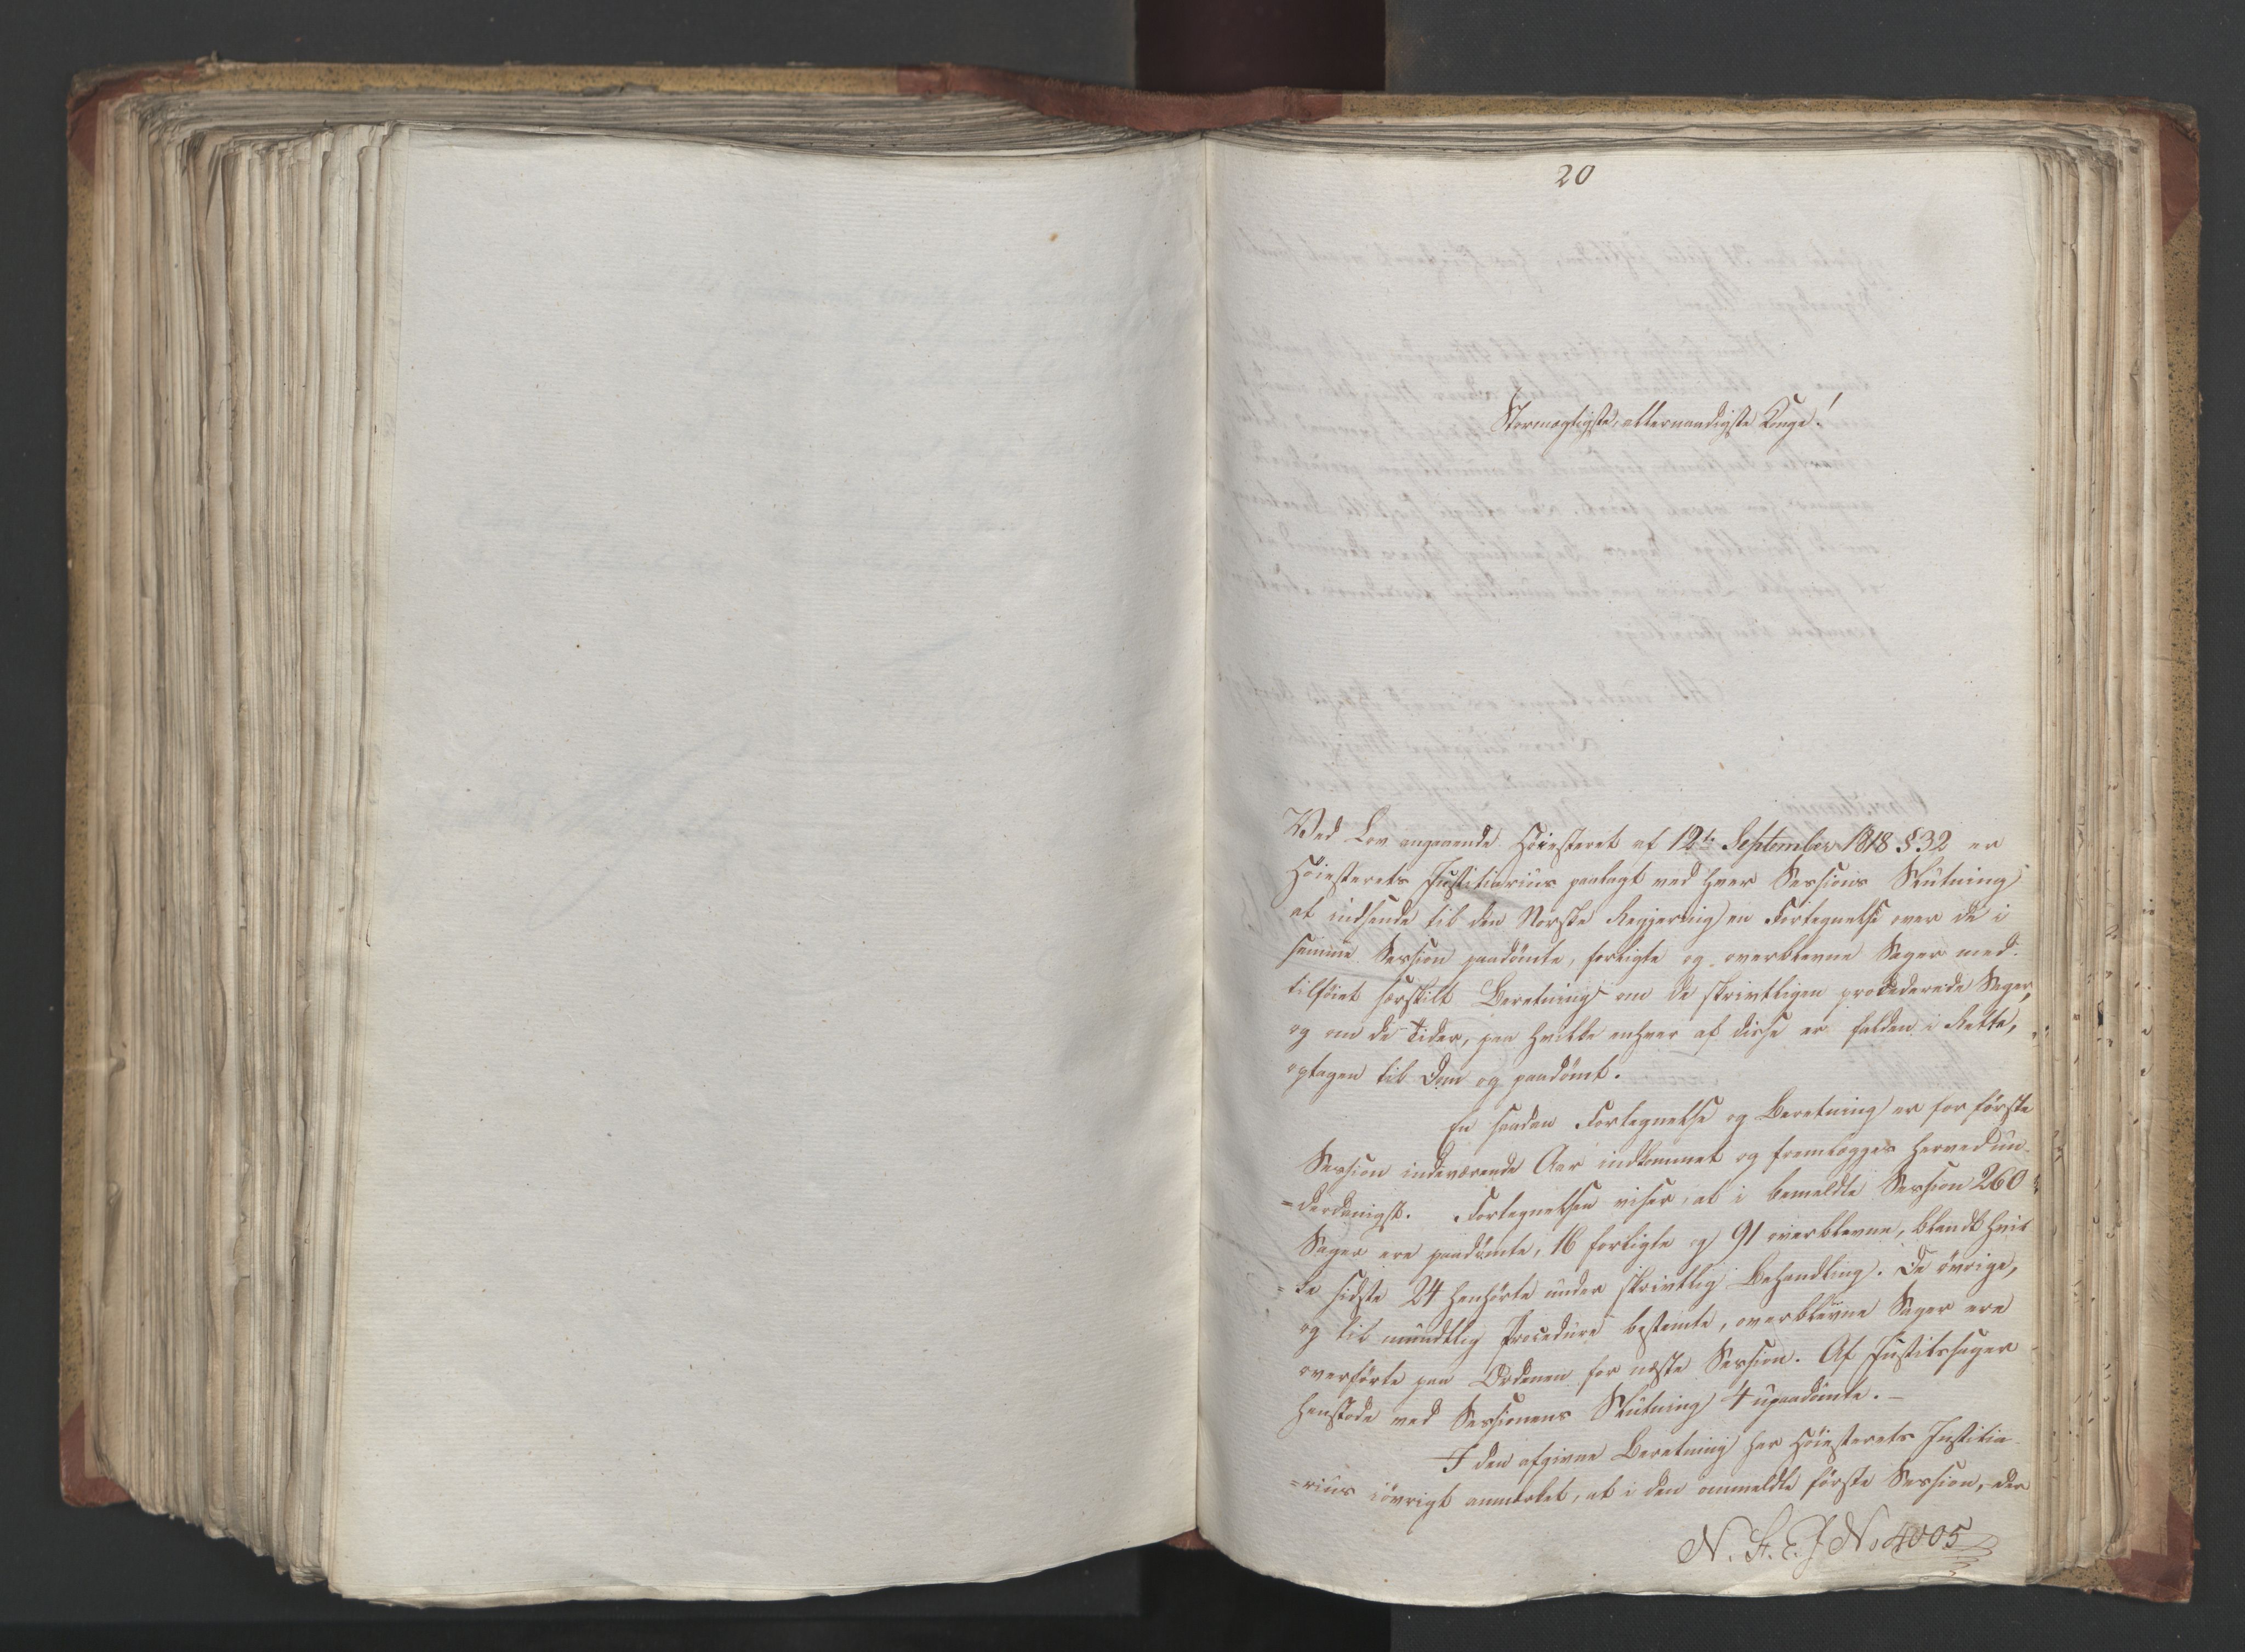 20
Stormægtigste, allernaadigste Konge!
Ved Lov angaaende Höiesteret af 12te September 1818 § 32 er
Höiesterets Justitiarius paalagt ved hver Sessions Slutning
at indsende til den Norske Regjering en Fortegnelse over de i
samme Session paadömte, forligte og overblevne Sager med
tilföiet særskilt Beretning om de skrivtligen procederede Sager,
og om de Tider, paa hvilke enhver af disse er falden i Rette,
optagen til Dom og paadömt.
En saadan Fortegnelse og Beretning er for förste
Session indeværende Aar indkommet og fremlægges herved un-
=derdanigst. Fortegnelsen viser, at i bemeldte Session 260
Sager ere paadömte, 16 forligte og 91 overblevne, blandt hvil
=ke sidste 24 henhörte under skrivtlig Behandling. De övrige,
og til mundtlig Procedure bestemte, overblevne Sager ere
overförte paa Ordenen for næste Session. Af Justitssager
henstode ved Sessionens Slutning 4 upaadömte. –
I den afgivne Beretning har Höiesterets Justitia
=rius iövrigt anmærket, at i den ommeldte förste Session, der
N. S. E. J No 4005